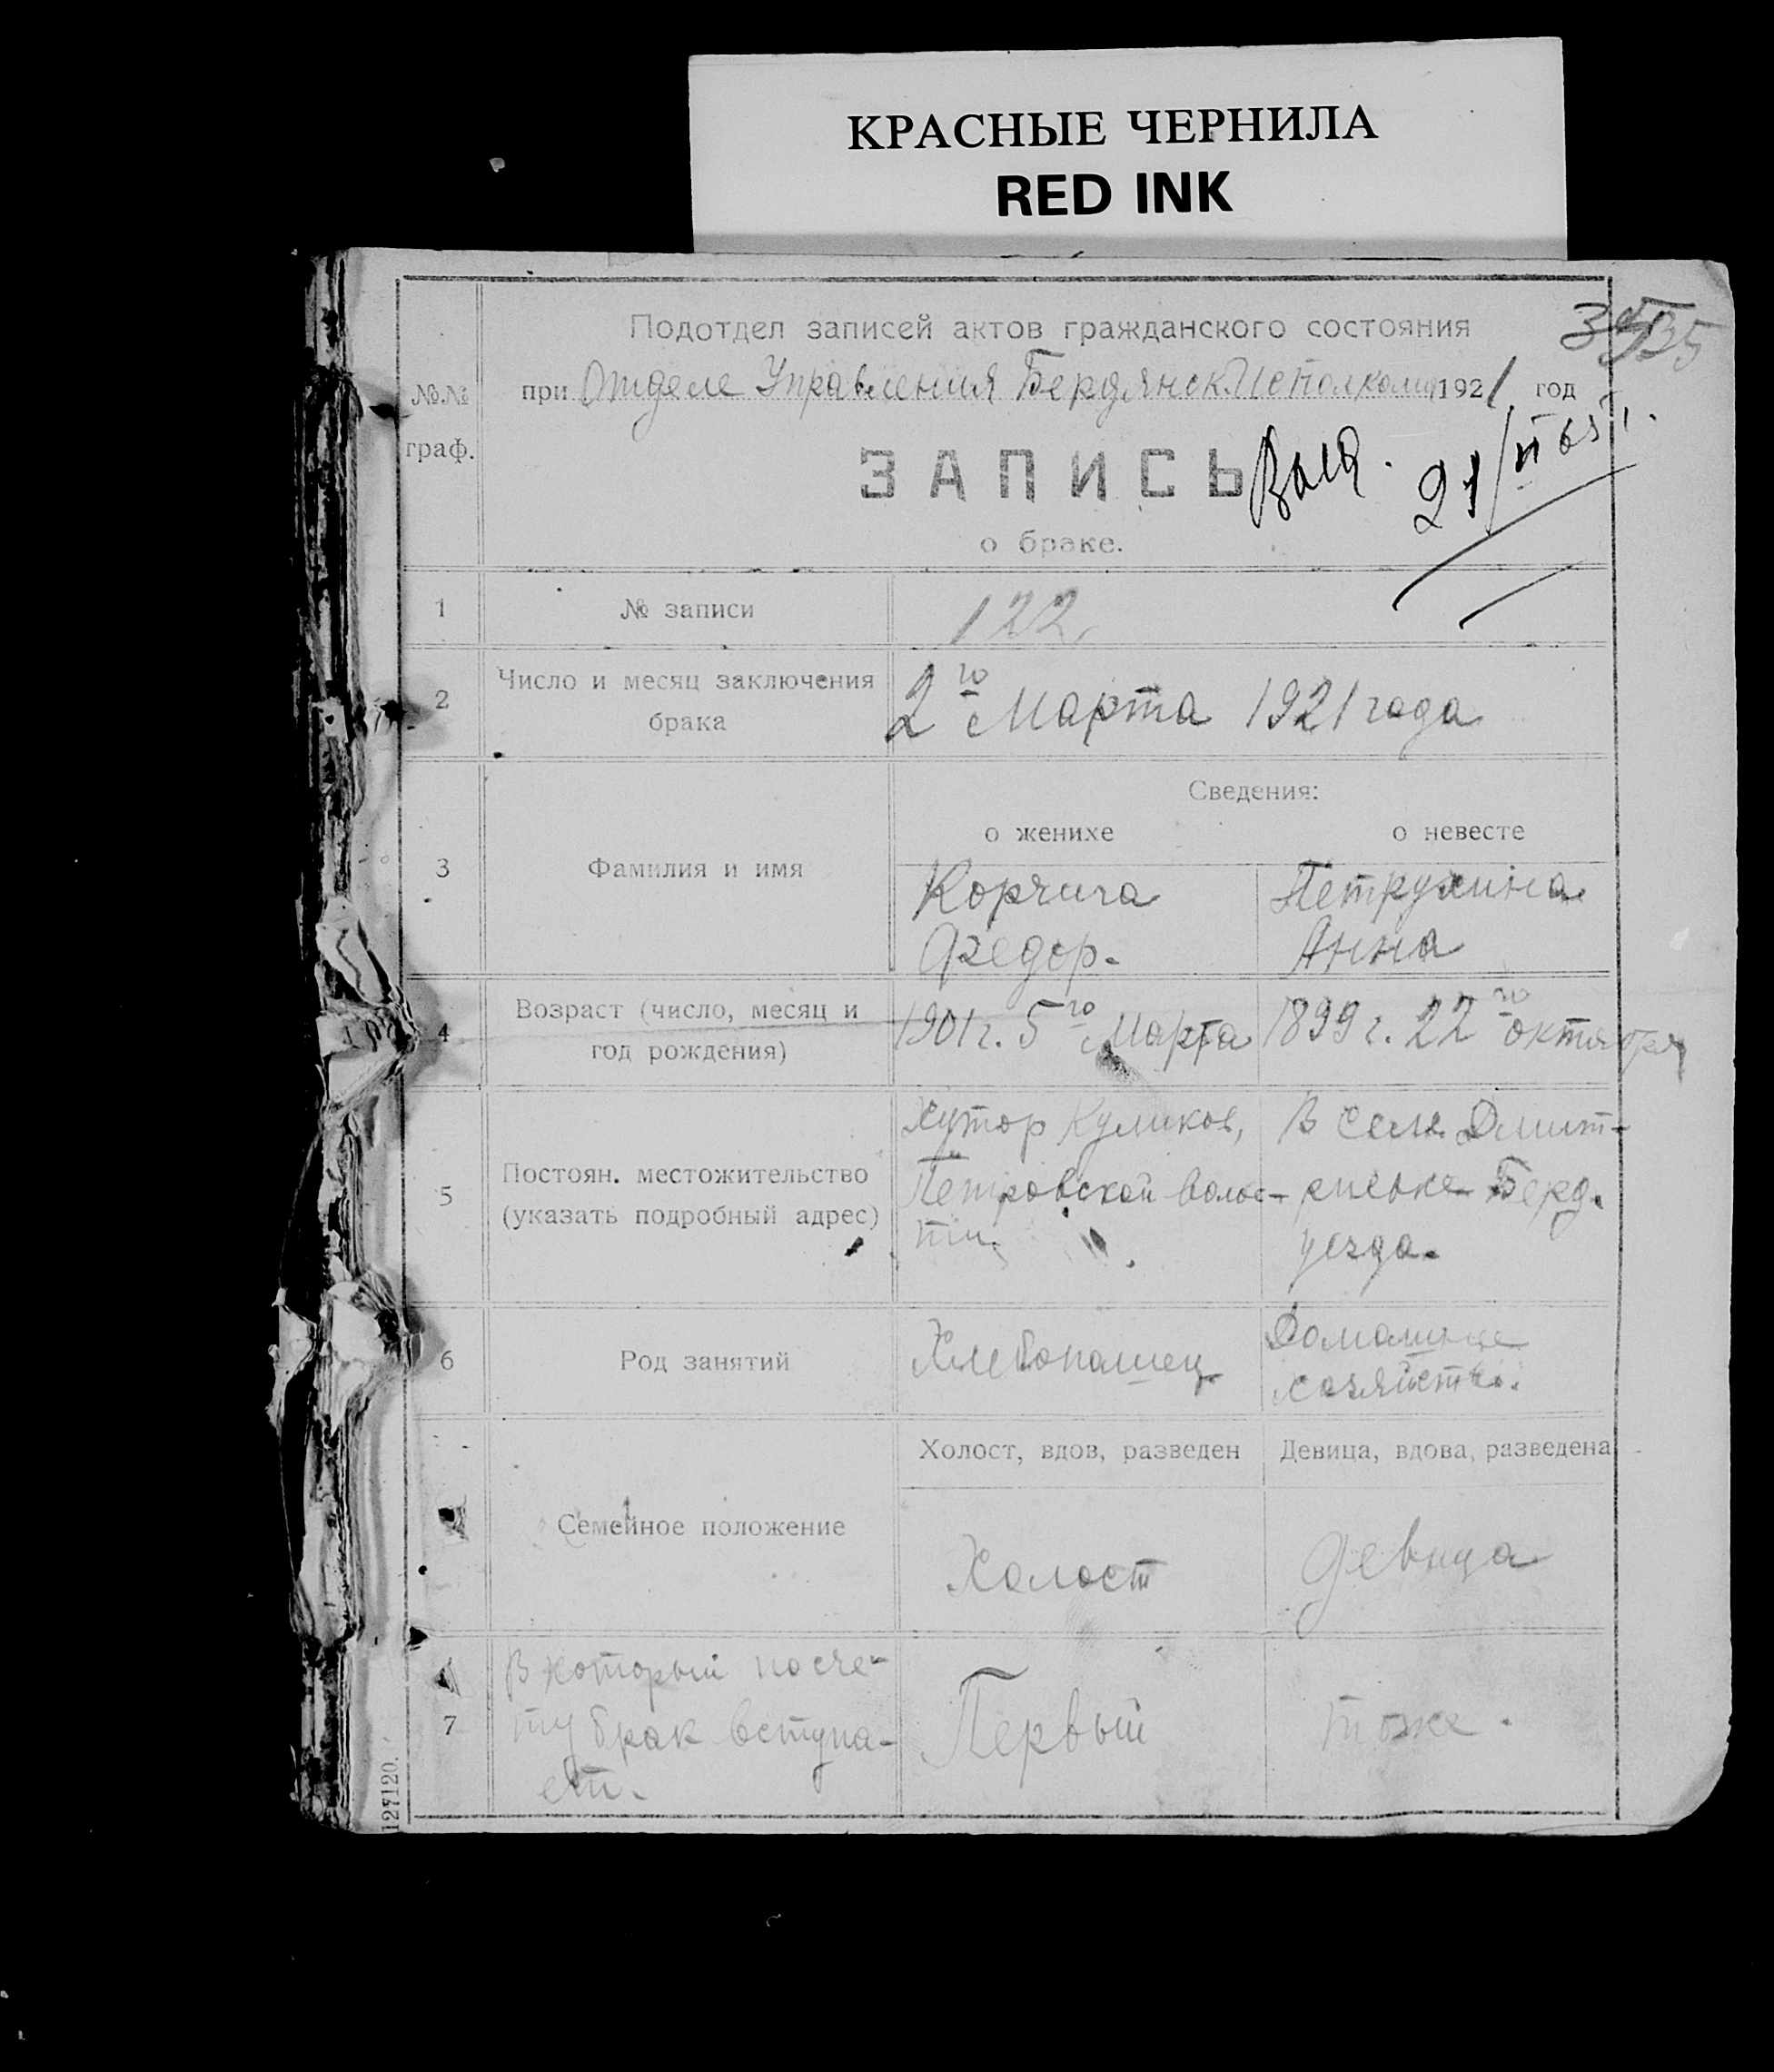 КРАСНЫЕ ЧЕРНИЛА
RED INK
Подотдел записей актов гражданского состояния
при Отделе Управления Бердянск. Исполкома 1921 год
№№
граф.
ЗАПИСЬ
о браке.
1 № записи 122
2 Число и месяц заключения
брака
2го Марта 1921 года
Сведения:
о женихе о невесте
3 Фамилия и имя
Корчига Петрухина
Федор. Анна
4 Возраст (число, месяц и
год рождения)
1901 г. 5го Марта 1899 г. 22го октября
5 Постоян. местожительство
(указать подробный адрес)
Хутор Куликов, В селе Дмит-
Петровской волос- риевке Берд.
ти. уезда.
6 Род занятий
Хлебопашец Домашнее
хозяйство.
Холост, вдов, разведен Девица, вдова, разведена
Семейное положение
Холост девица
7 В который по сче-
ту брак вступа-
ет.
Первый тоже.
127120.